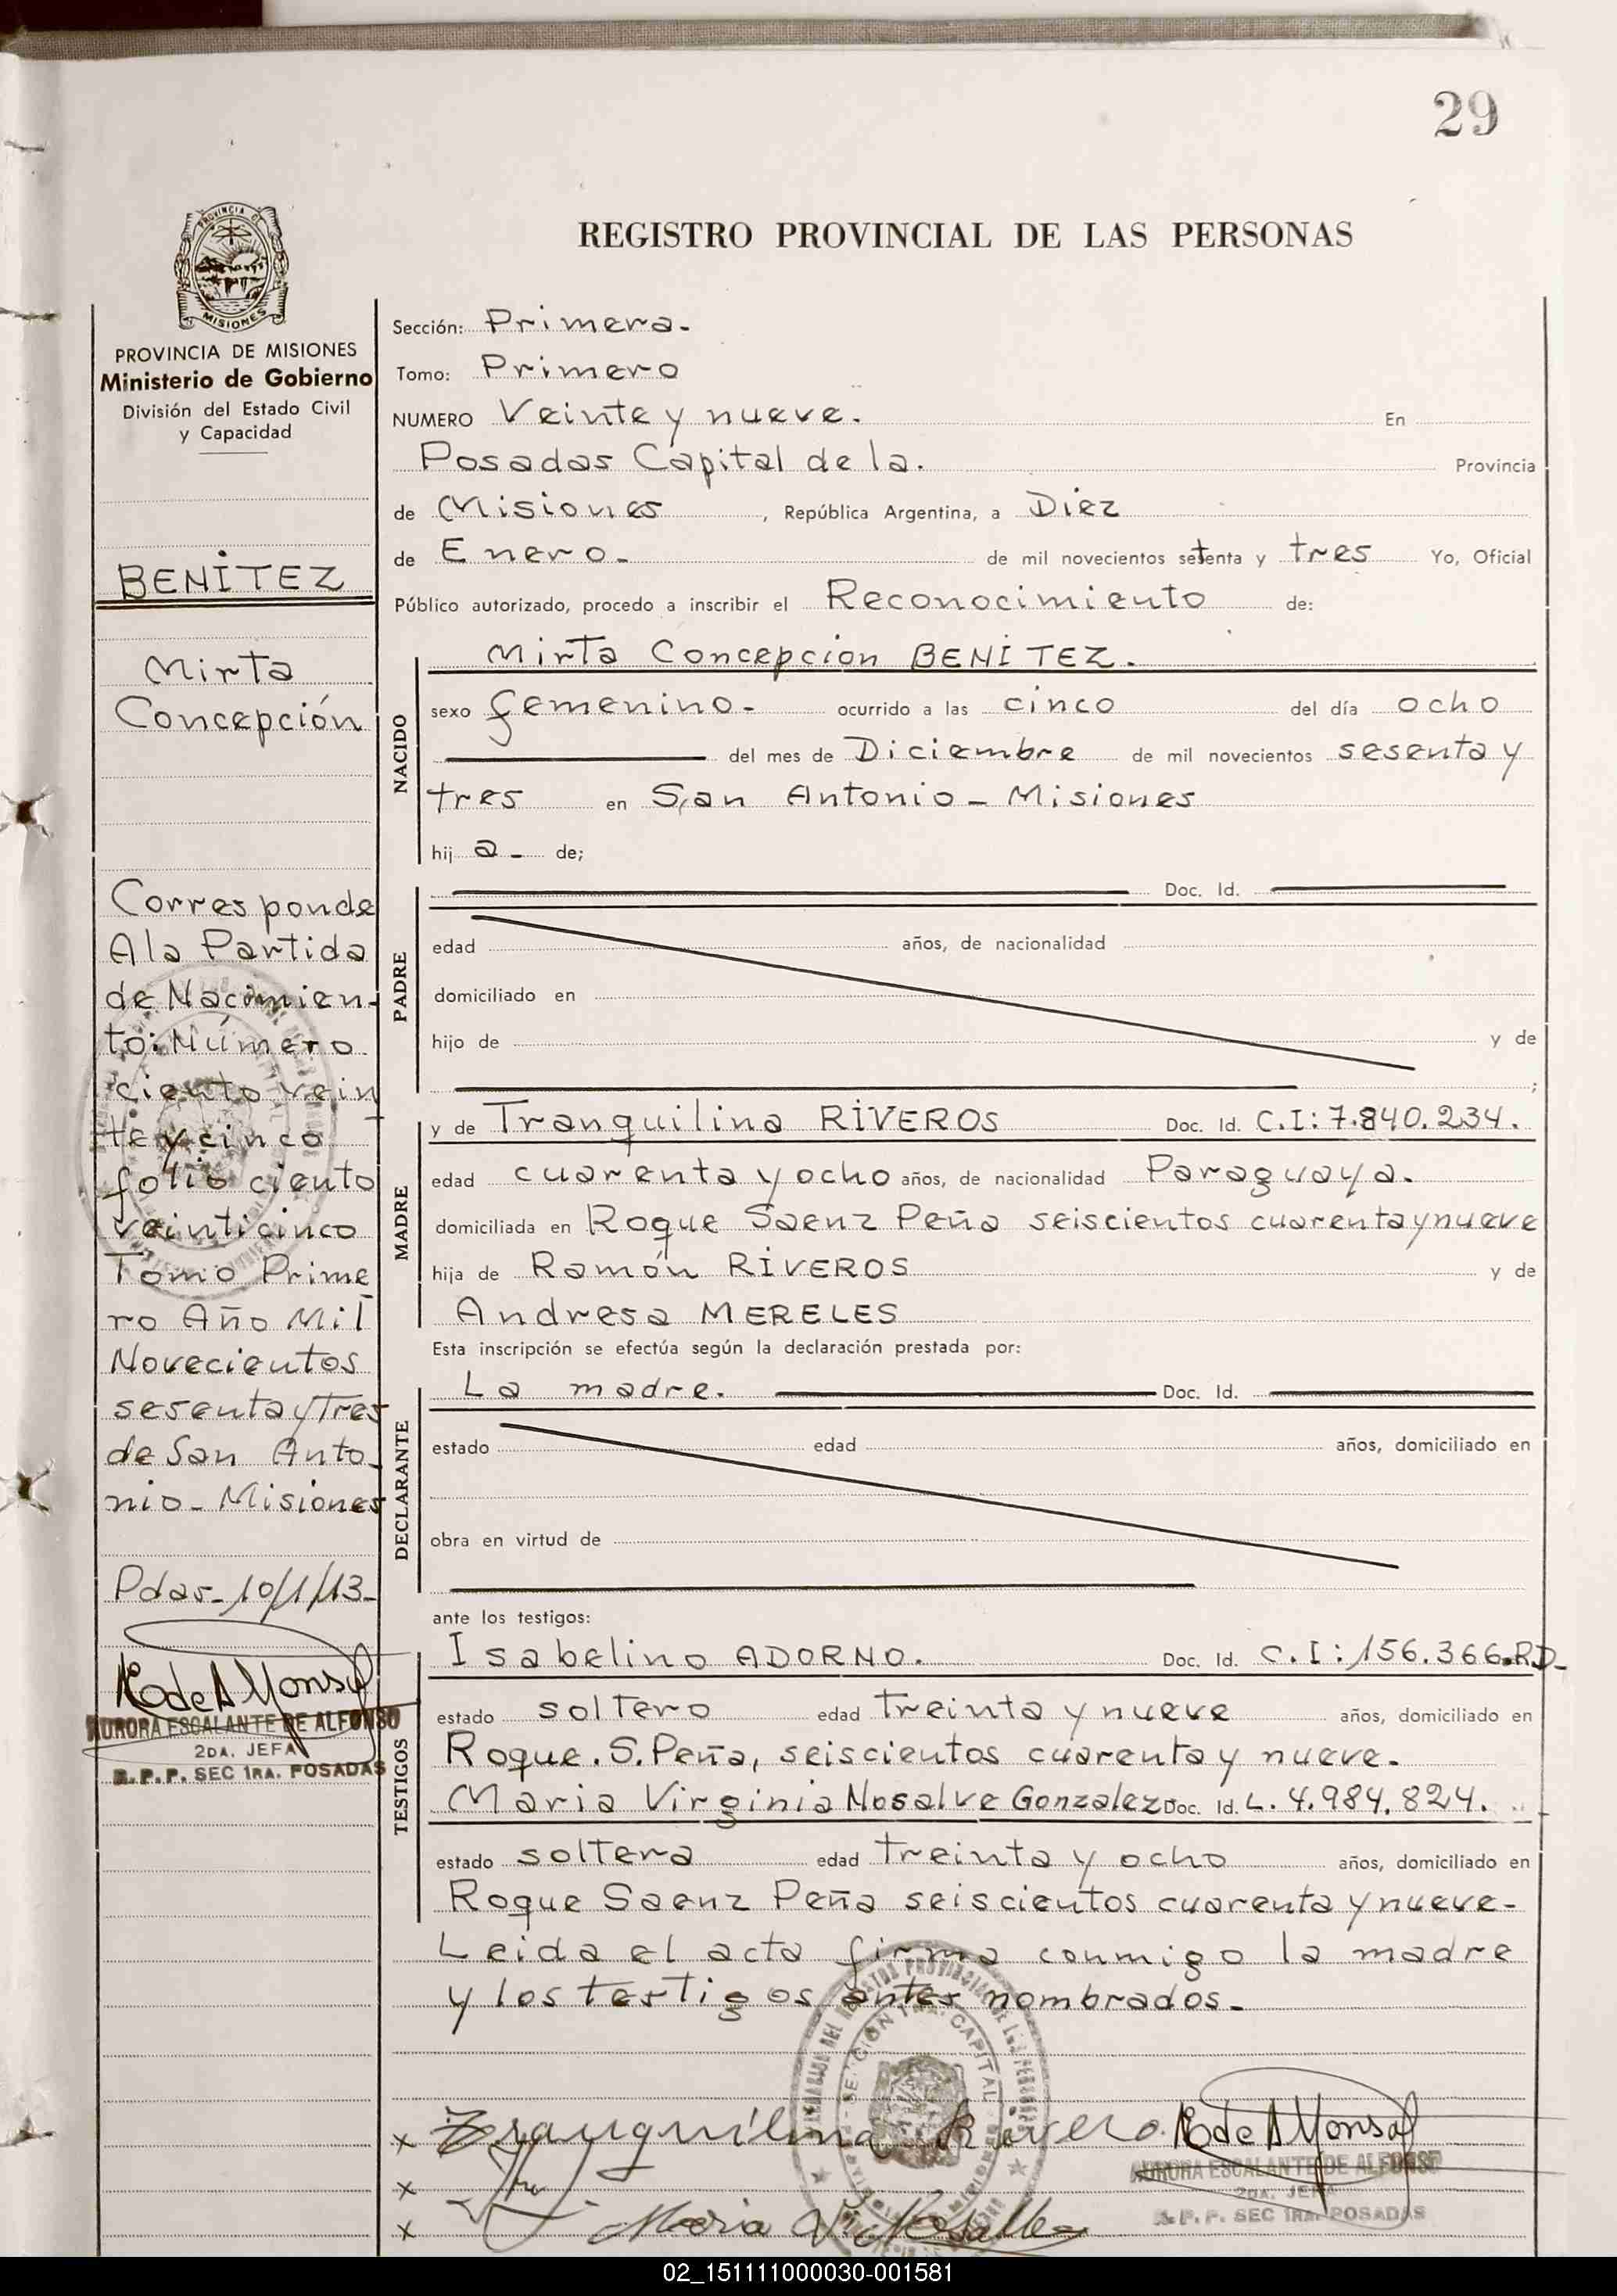 29
PROVINCIA DE
MISIONES
REGISTRO PROVINCIAL DE LAS PERSONAS
PROVINCIA DE MISIONES
Ministerio de Gobierno
División del Estado Civil
y Capacidad
BENÍTEZ
Mirta
Concepción
Corresponde
A la Partida
de Nacimien-
to: Número
ciento vein
te y cinco
folio ciento
veinticinco
Tomo Prime
ro Año Mil
Novecientos
sesenta y Tres
de San Anto-
nio - Misiones
Pdas- 10/1/73-
AURORA ESCALANTE DE ALFONSO
2DA. JEFA
R.P.P. SEC 1RA. POSADAS
Sección: Primera.
Tomo: Primero
NUMERO Veinte y nueve. En
Posadas Capital de la. Provincia
de Misiones, República Argentina, a Diez
de Enero. de mil novecientos setenta y tres Yo, Oficial
Público autorizado, procedo a inscribir el Reconocimiento de:
NACIDO
Mirta Concepcion BENITEZ.
sexo femenino- ocurrido a las cinco del día ocho
del mes de Diciembre de mil novecientos sesenta y
tres en San Antonio - Misiones
hij a- de;
PADRE
Doc. Id.
edad años, de nacionalidad
domiciliado en
hijo de y de
;
MADRE
y de Tranquilina RIVEROS Doc. Id. C.I: 7.840.234.
edad cuarenta y ocho años, de nacionalidad Paraguaya.
domiciliada en Roque Saenz Peña seiscientos cuarenta y nueve
hija de Ramón RIVEROS y de
Andresa MERELES
Esta inscripción se efectúa según la declaración prestada por:
DECLARANTE
La madre. Doc. Id.
estado edad años, domiciliado en
obra en virtud de
ante los testigos:
TESTIGOS
Isabelino ADORNO. Doc. Id. C.I: 156.366.RD-
estado soltero edad treinta y nueve años, domiciliado en
Roque. S. Peña, seiscientos cuarenta y nueve.
Maria Virginia Nosalve Gonzalez Doc. Id. L. 4.984.824.
estado soltera edad treinta y ocho años, domiciliado en
Roque Saenz Peña seiscientos cuarenta y nueve-
Leida el acta firma conmigo la madre
y los testigos antes nombrados-
x Tranquilina Rivero
x
x Maria Vi
AURORA ESCALANTE DE ALFONSO
2DA. JEFA
R.P.P. SEC 1RA. POSADAS
02_151111000030-001581